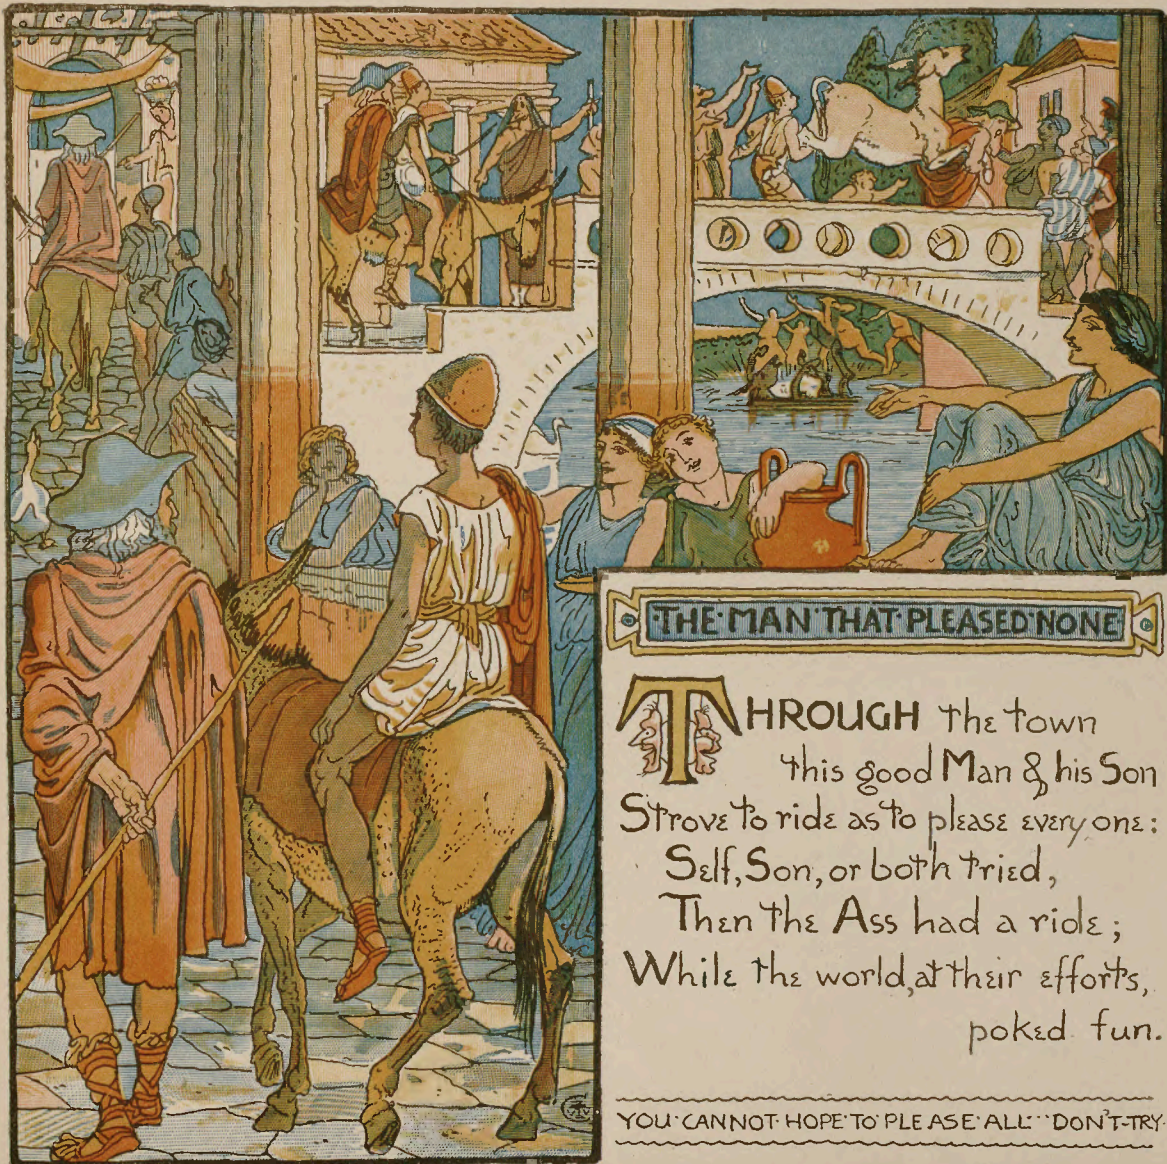 THE·MAN THAT·PLEASED·NONE
THROUGH the town
this good Man & his Son
Strove to ride as to please everyone:
Self, Son, or both tried,
Then the Ass had a ride;
While the world, at their efforts,
poked fun.
YOU·CANNOT·HOPE·TO·PLEASE·ALL···DON'T-TRY·